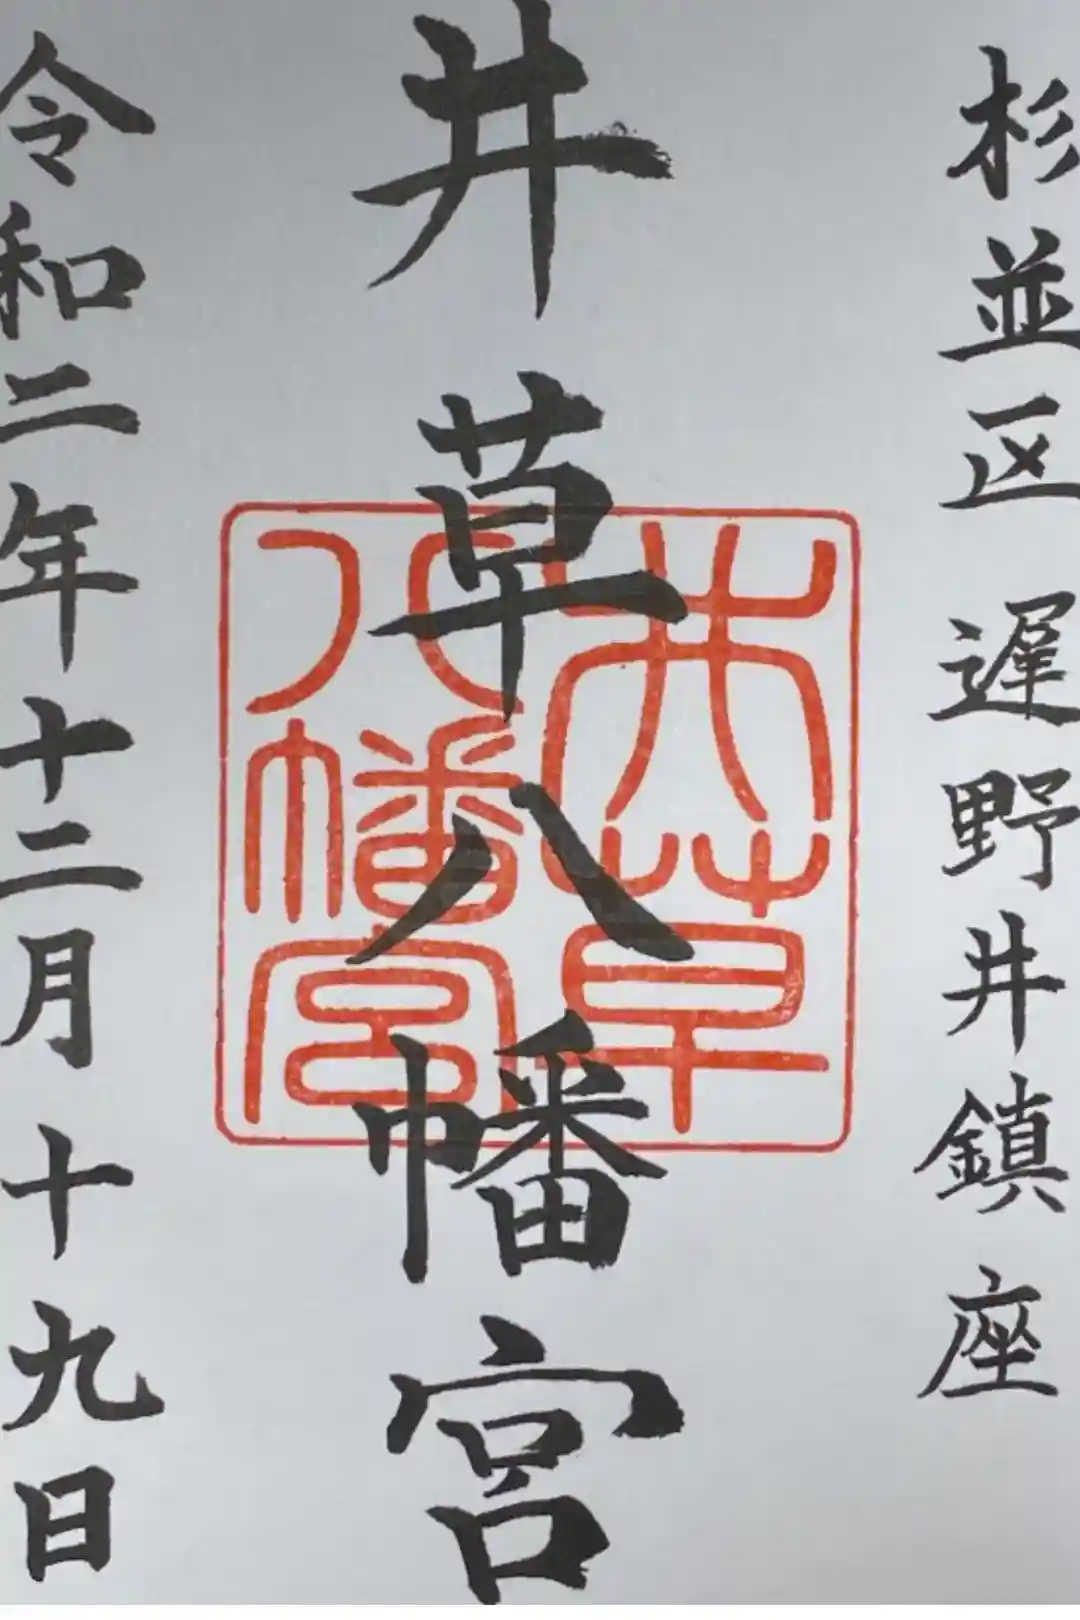 杉並区 遅野井鎮座
井草八幡宮
井草
八幡宮
令和二年十二月十九日